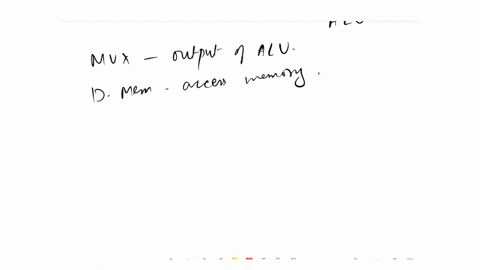 ALU
MUX - output of ALU.
D. Mem - access memory.